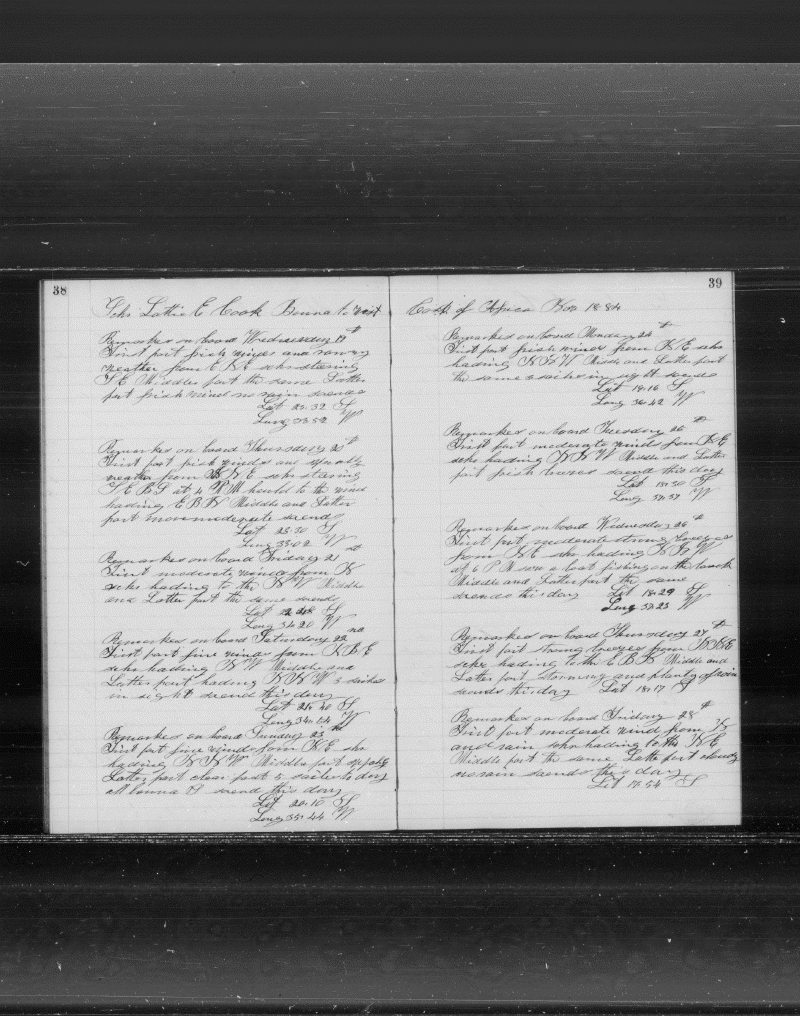 38
Schr Lottie E Cook Bound to west
Remarkes on board Wednesday 19th
First part frish winds and rainy
weather from E N E schr stering
S E Middle part the same Latter
part frish wind no rain so ends
Lat 25.32 S
Long 33.52 W
Remarkes on board Thursday 20th
First part frish winds and squally
weather from N E schr stering
S E B S at 4 P M hauld to the wind
hading E B N Middle and Latter
part more moderate so ends
Lat 25.30 S
Long 33.02 W
Remarkes on board Friday 21st
First moderate winds from N
schr hading to the N W Middle
and Latter part the same so ends
Lat S
Long 34.20 W
Remarkes on board Saturday 22nd
First part fine winds from N E
schr hading N W Middle and
Latter part hading N N W 3 sailes
in sight so end this day
Lat 21.40 S
Long 34.54 W
Remarkes on board Sunday 23rd
First part fine wind from N E schr
hading N N W Middle part squaly
Latter part clear past 5 sailes to day
so end this day
Lat 20.10 S
Long 35.44 W
39
Cost of Africa Nov 1884
Remarkes on board Monday 24th
First part frish winds from N E schr
hading N W Middle and Latter part
the same 2 sailes in sight so ends
Lat 18.16 S
Long 36.42 W
Remarkes on board Tuesday 25th
First part moderate winds from N E
schr hading N N W Middle and Latter
part frish breeses so end this day
Lat 18.30 S
Long 37.37 W
Remarkes on board Wednesday 26th
First part moderate strong breeses
from N E schr hading N B W
at 6 P M saw a boat fishing on the bank
Middle and Latter part the same
so ends this day Lat 18.29 S
Long 37.23 W
Remarkes on board Thursday 27th
First part strong breeses from N N E
schr hading to the E B N Middle and
Latter part stormy and planty of rain
so ends this day Lat 18.17 S
Remarkes on board Friday 28th
First part moderate wind from N
and rain schr hading to the N E
Middle part the same Latter part cloudy
no rain so ends this day
Lat 17.54 S